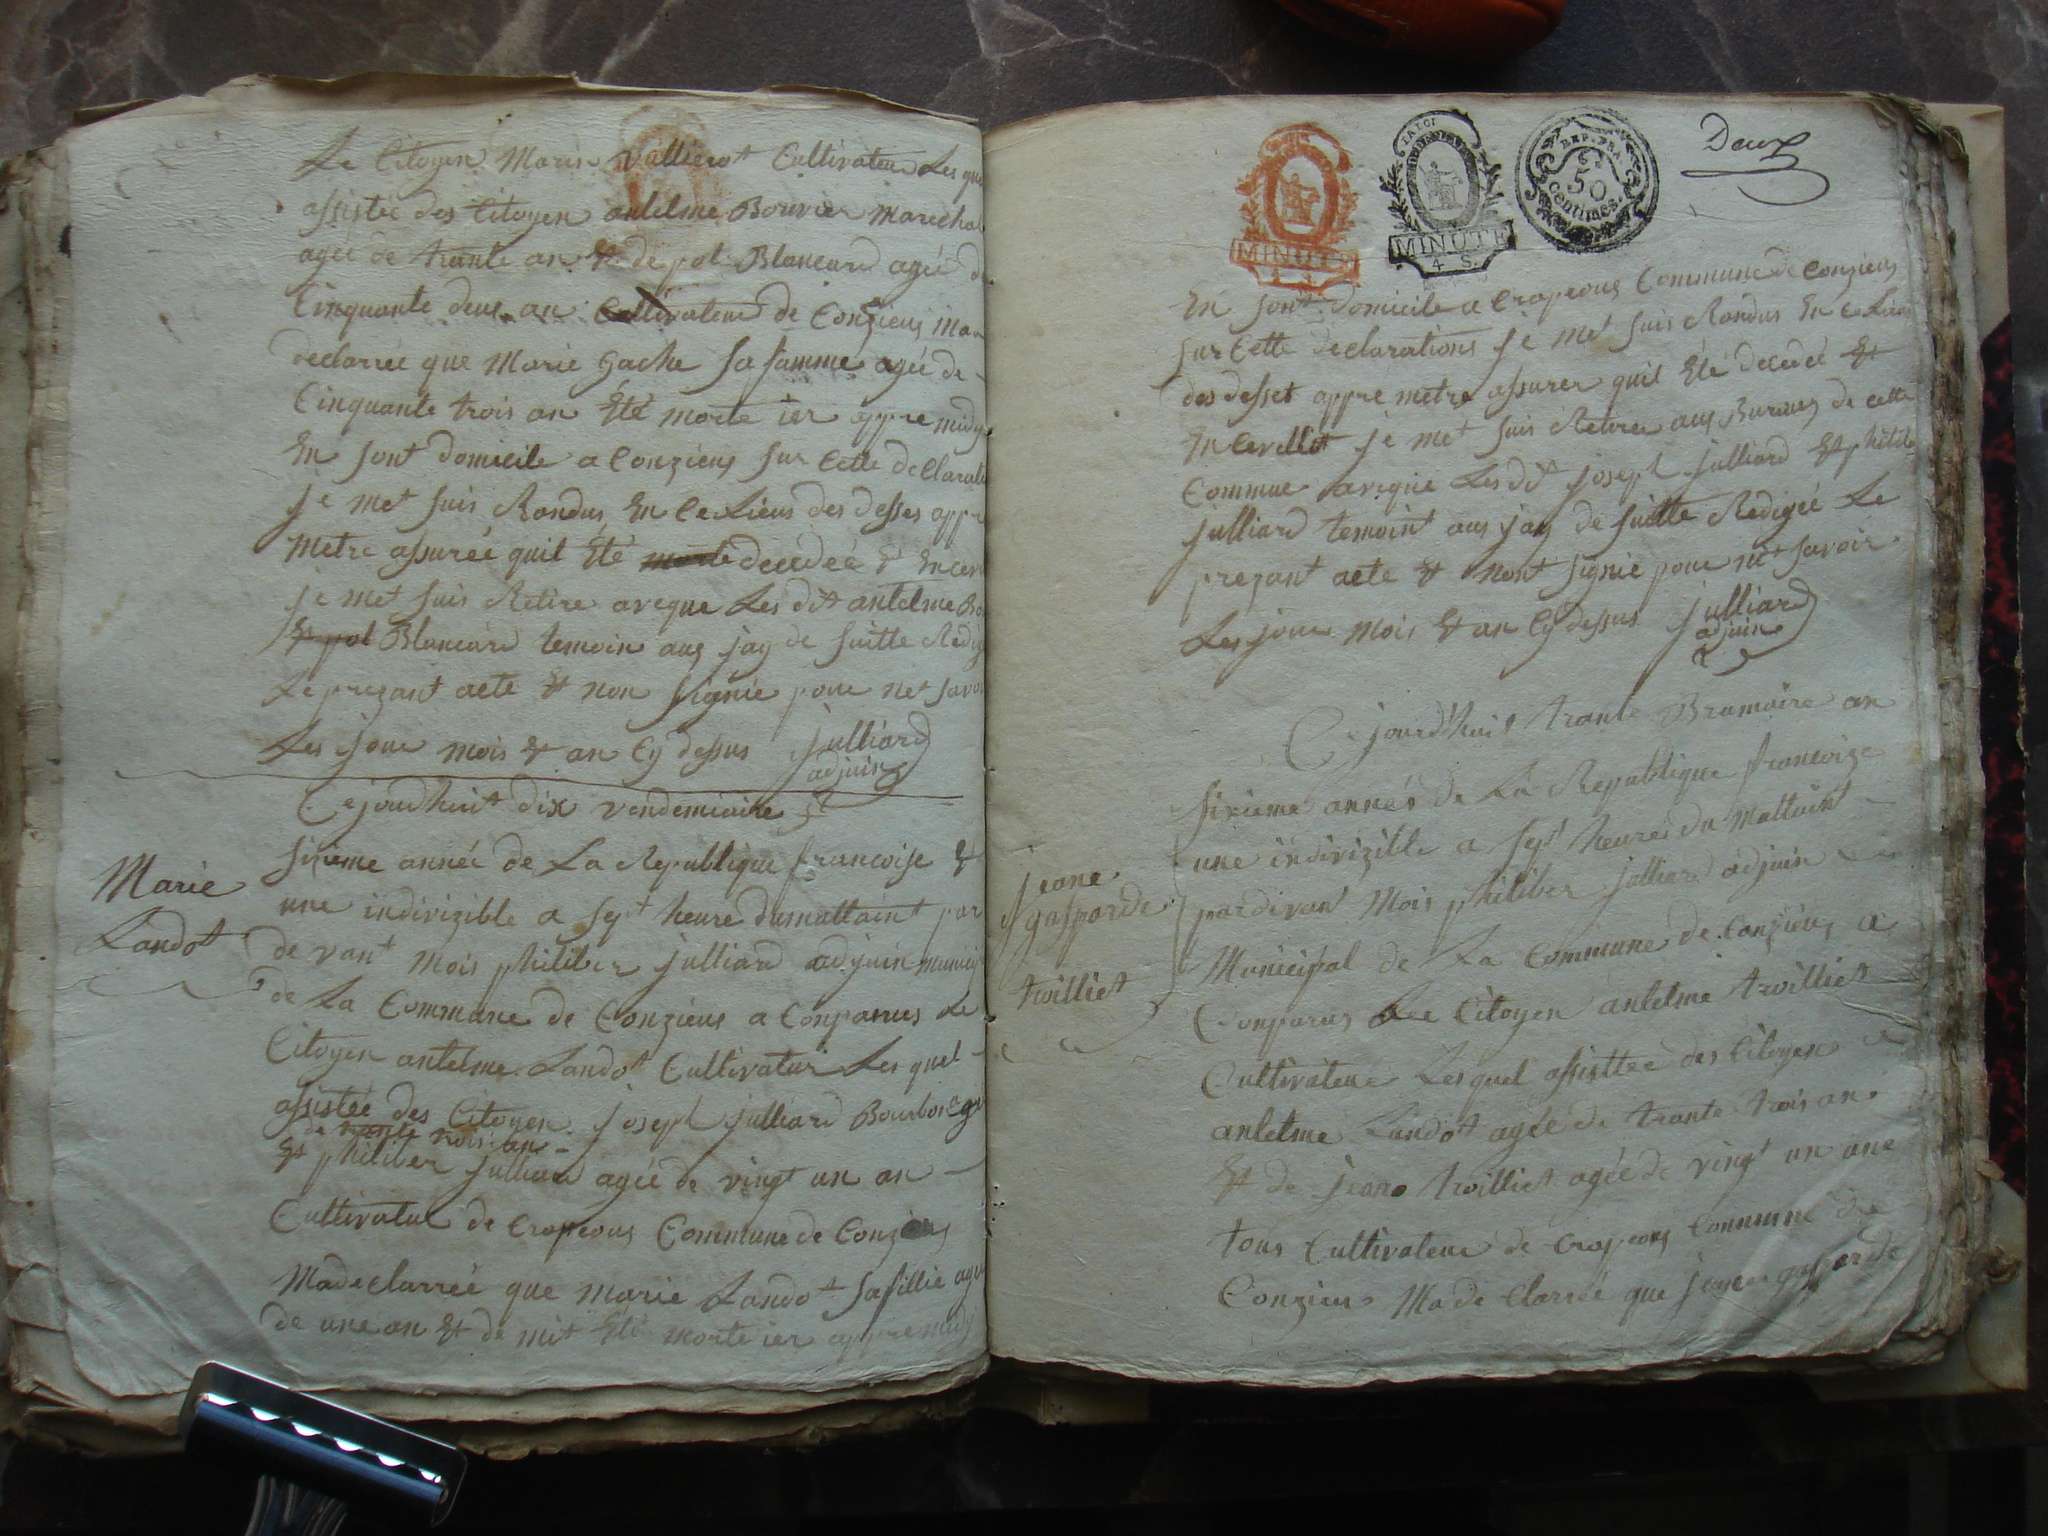 Le Citoyen Maris vullierot Cultivateur Les que
assistée des Citoyen antelme Bouvier marechal
agée de trante an & de pol Blancard agée de
Cinquante deux an Cultivateur de Conzieux ma
declarrée que Marie Gache sa famme agée de
Cinquante trois an Eté morte ier appre midy
En sont domicile a Conzieux sur Cette declarati
je me suis Randus En Ce Lieux des desses appre
metre assurée quil Eté decedeé &
je met suis Retire aveque Les dit antelme Bo
& pol Blancard temoin aux jay de suitte Redig
Le prezant acte & non signie pour net savoi
Les jour mois & an Cy dessus julliard
adjuin
Cejourdhuit dix vendemiaire
sixieme année de La Republique francoise &
une indivizible a sept heure dumattaint par
de vant mois philiber julliard adjuin municip
de La Commune de Conzieux a Conparrus Le
Citoyen antelme Landot Cultivatur Les quel
assistée des Citoyen joseph julliard Bourbon age
de trante trois an
& philiber julliard agée de vingt un an
Cultivatur de Crapeoux Commune de Conzieux
Madeclarrée que marie Landot sa fillie agée
de une an & de mit Eté morte ier appremidy
Marie
Landot
MINUTE
4 S.
MINUTE
4 S.
REP. FRA.
50
centimes
Deux
En sont domicile a Crapeoux Commune de Conzieux
sur Cette declarations je met suis Randus En Ce Lieux
des desset appre metre assurer quil Eté decedé &
je met suis Retirer aux Bureaux de cette
Commue aveque Les dit joseph julliard & philib
julliard temoint aux jay de suitte Redigée Le
prezant acte & nont signie pour net savoir
Les jour mois & an Cy dessus julliard
adjuin
Ce jourd'huit trante Brumaire an
sixieme année de La Republique francoize
une indivizible a sept heure du mattaint
pardivant Mois philiber julliard adjuin
Municipal de La Commune de Conzieux a
Conparus Le Citoyen antelme trvilliet
Cultivateur Lesquel assisttée des Citoyen
antelme Landot agée de trante trois an
& de jeane trvilliet agée de vingt un ane
tous Cultivateur de Crapeoux Commune de
Conzieux Ma de Clarrée que jeane gasparde
jeane
gasparde
trvilliet